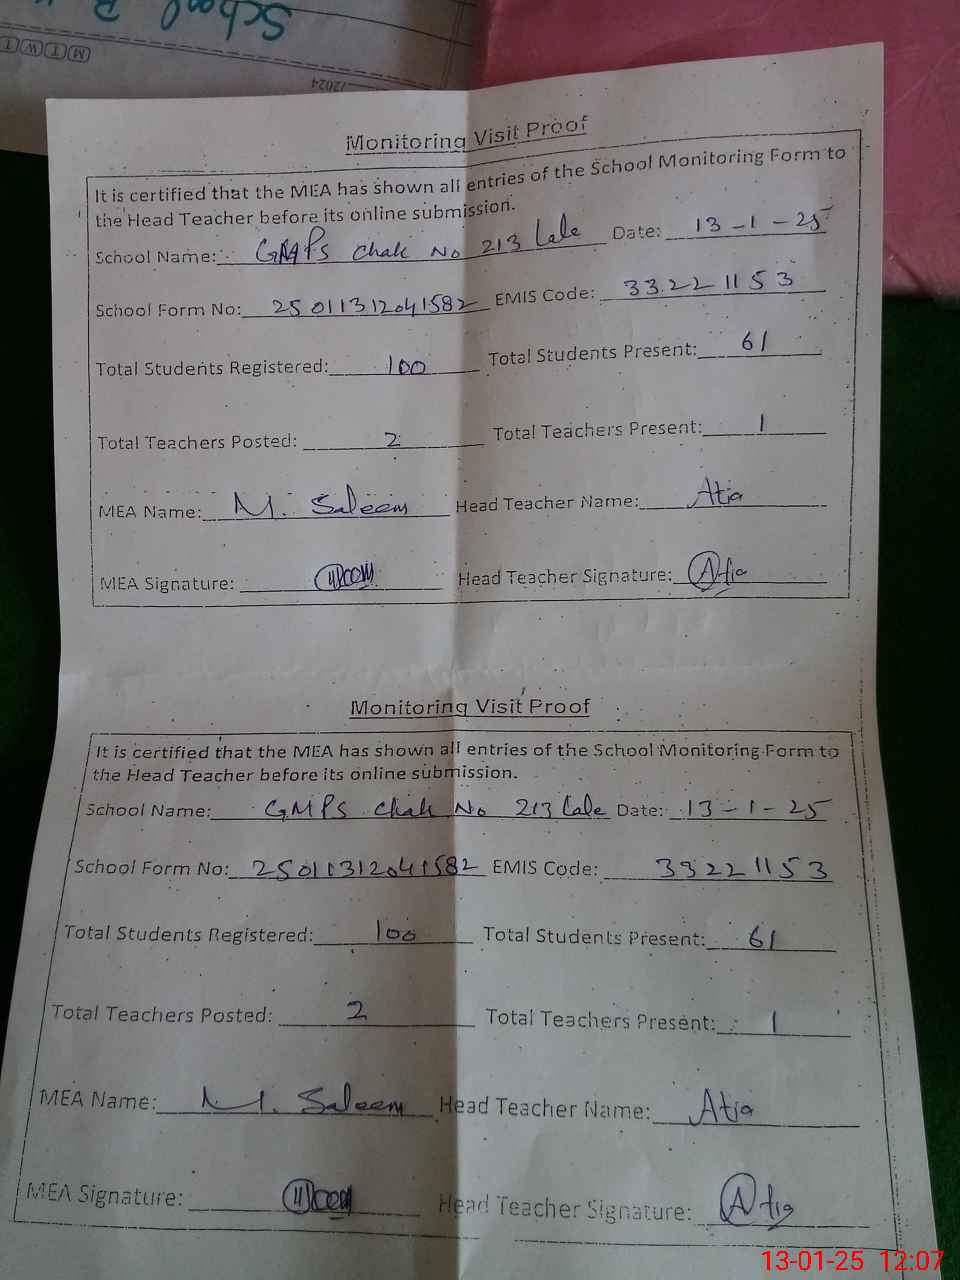 School
M T W T
/2024
Monitoring Visit Proof
It is certified that the MEA has shown all entries of the School Monitoring Form to
the Head Teacher before its online submission.
School Name: GMPS Chak No 213 Lale Date: 13-1-25
School Form No: 25011312041582 EMIS Code: 33221153
Total Students Registered: 100 Total Students Present: 61
Total Teachers Posted: 2 Total Teachers Present: 1
MEA Name: M. Saleem Head Teacher Name: Atia
MEA Signature: Head Teacher Signature: Atia
Monitoring Visit Proof
It is certified that the MEA has shown all entries of the School Monitoring Form to
the Head Teacher before its online submission.
School Name: GMPS Chak No 213 Lale Date: 13-1-25
School Form No: 25011312041582 EMIS Code: 33221153
Total Students Registered: 100 Total Students Present: 61
Total Teachers Posted: 2 Total Teachers Present: 1
MEA Name: M. Saleem Head Teacher Name: Atia
MEA Signature: Head Teacher Signature: Atia
13-01-25 12:07